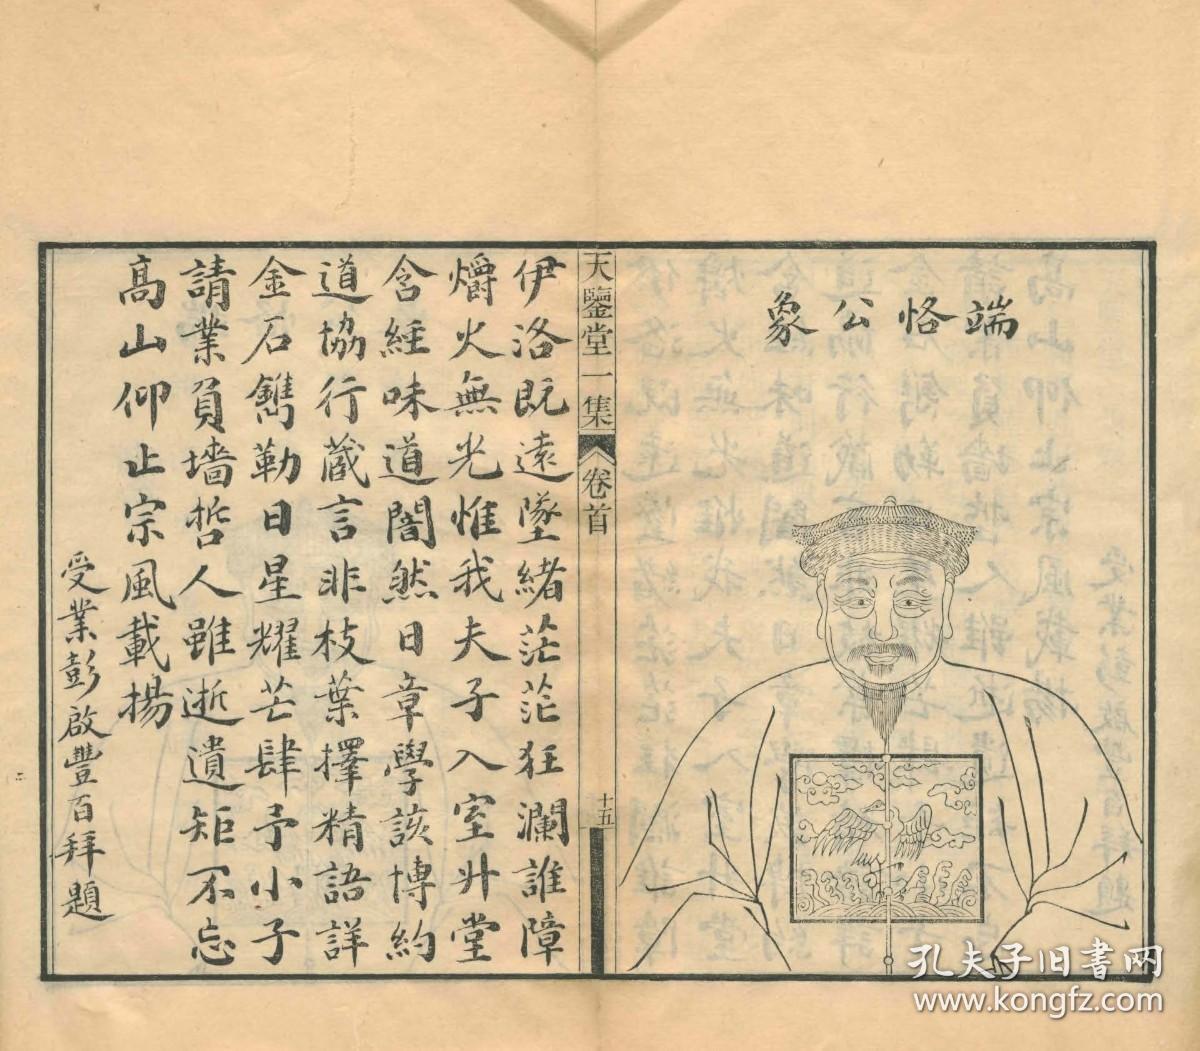 端恪公象
天鑒堂一集 卷首 十五
伊洛既遠墜緒茫茫狂瀾誰障
爝火無光惟我夫子入室升堂
含經味道闇然日章學該博約
道協行藏言非枝葉擇精語詳
金石鐫勒日星耀芒肆予小子
請業負墻哲人雖逝遺矩不忘
高山仰止宗風載揚
受業彭啟豐百拜題
孔夫子旧书网
www.kongfz.com